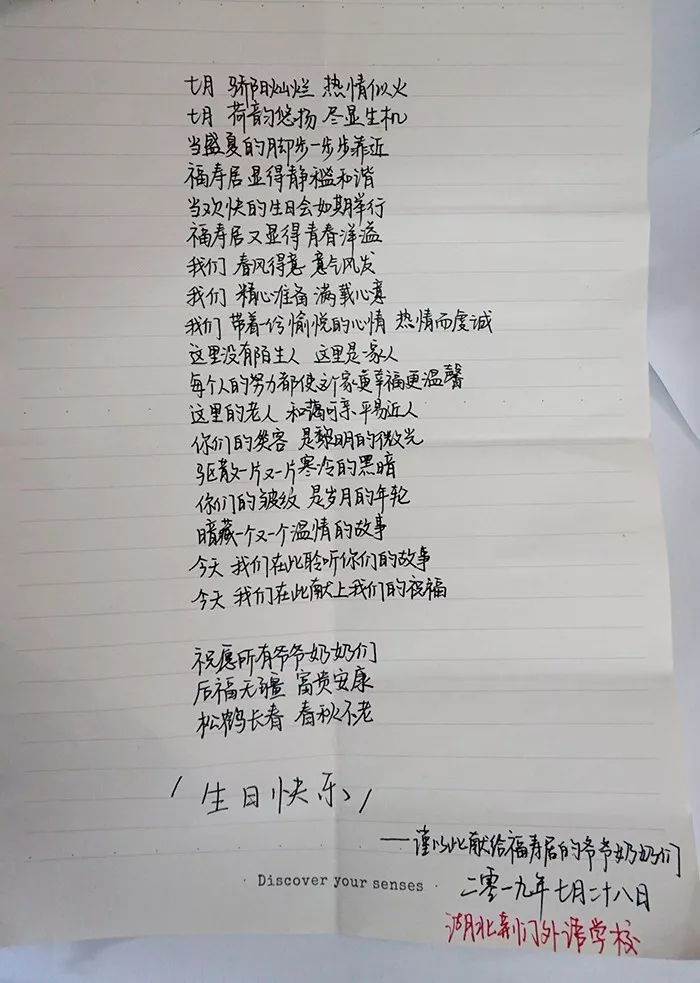 七月 骄阳灿烂 热情似火
七月 荷韵悠扬 尽显生机
当盛夏的脚步一步步靠近
福寿居显得静谧和谐
当欢快的生日会如期举行
福寿居又显得青春洋溢
我们 春风得意 意气风发
我们 精心准备 满载心意
我们 带着一份愉悦的心情 热情而虔诚
这里没有陌生人 这里是一家人
每个人的努力都使这个家更幸福更温馨
这里的老人 和蔼可亲 平易近人
你们的笑容 是黎明的微光
驱散一片又一片寒冷的黑暗
你们的皱纹 是岁月的年轮
暗藏一个又一个温情的故事
今天 我们在此聆听你们的故事
今天 我们在此献上我们的祝福
祝愿所有爷爷奶奶们
后福无疆 富贵安康
松鹤长春 春秋不老
生日快乐
——谨以此献给福寿居的爷爷奶奶们
Discover your senses
二零一九年七月二十八日
湖北荆门外语学校